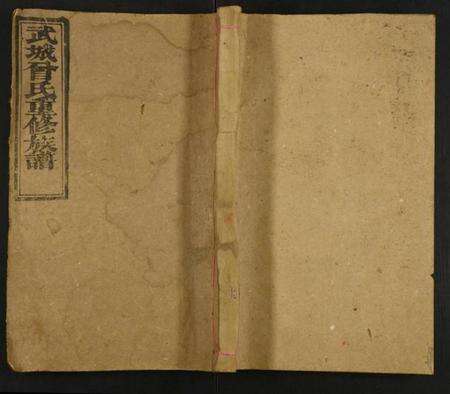 武城曾氏重修族譜